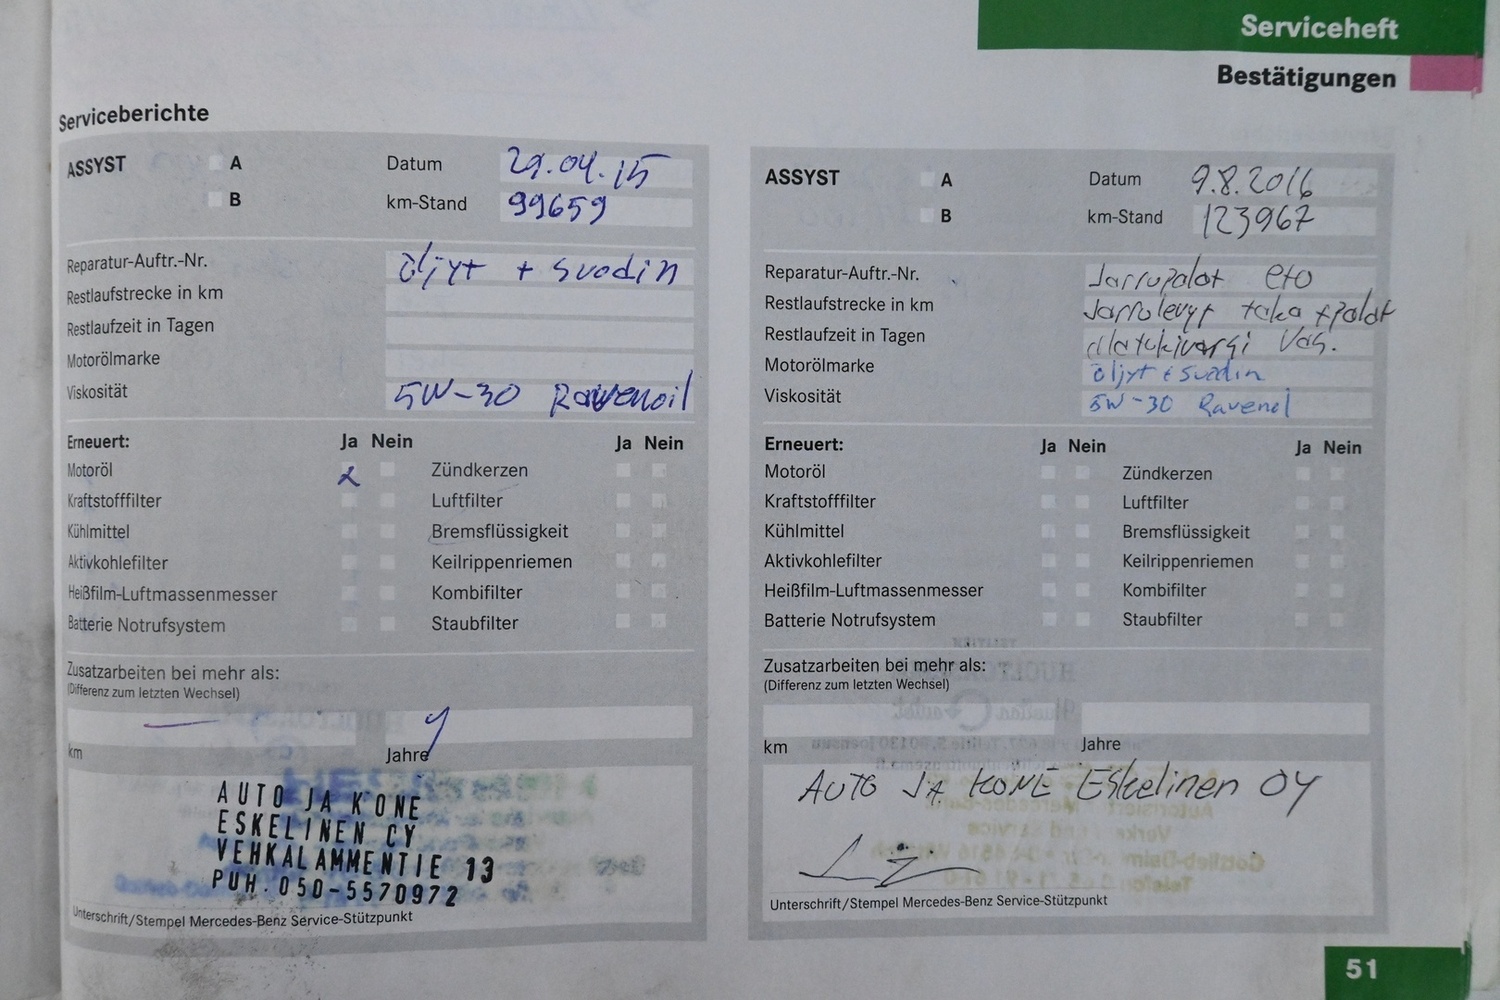 Serviceheft
Bestätigungen
Serviceberichte
ASSYST A Datum 29.04.15
B km-Stand 99659
Reparatur-Auftr.-Nr. öljyt + suodin
Restlaufstrecke in km
Restlaufzeit in Tagen
Motorölmarke
Viskosität 5W-30 Ravenoil
Erneuert: Ja Nein Ja Nein
Motoröl x Zündkerzen
Kraftstofffilter Luftfilter
Kühlmittel Bremsflüssigkeit
Aktivkohlefilter Keilrippenriemen
Heißfilm-Luftmassenmesser Kombifilter
Batterie Notrufsystem Staubfilter
Zusatzarbeiten bei mehr als:
(Differenz zum letzten Wechsel)
km Jahre
AUTO JA KONE
ESKELINEN CY
VEHKALAMMENTIE 13
PUH. 050-5570972
Unterschrift/Stempel Mercedes-Benz Service-Stützpunkt
ASSYST A Datum 9.8.2016
B km-Stand 123967
Reparatur-Auftr.-Nr. Jarrupalat etu
Restlaufstrecke in km Jarrulevyt taka + palat
Restlaufzeit in Tagen alatukivarsi Vas.
Motorölmarke öljyt + suodin
Viskosität 5W-30 Ravenol
Erneuert: Ja Nein Ja Nein
Motoröl Zündkerzen
Kraftstofffilter Luftfilter
Kühlmittel Bremsflüssigkeit
Aktivkohlefilter Keilrippenriemen
Heißfilm-Luftmassenmesser Kombifilter
Batterie Notrufsystem Staubfilter
Zusatzarbeiten bei mehr als:
(Differenz zum letzten Wechsel)
km Jahre
AUTO JA KONE Eskelinen OY
Unterschrift/Stempel Mercedes-Benz Service-Stützpunkt
51